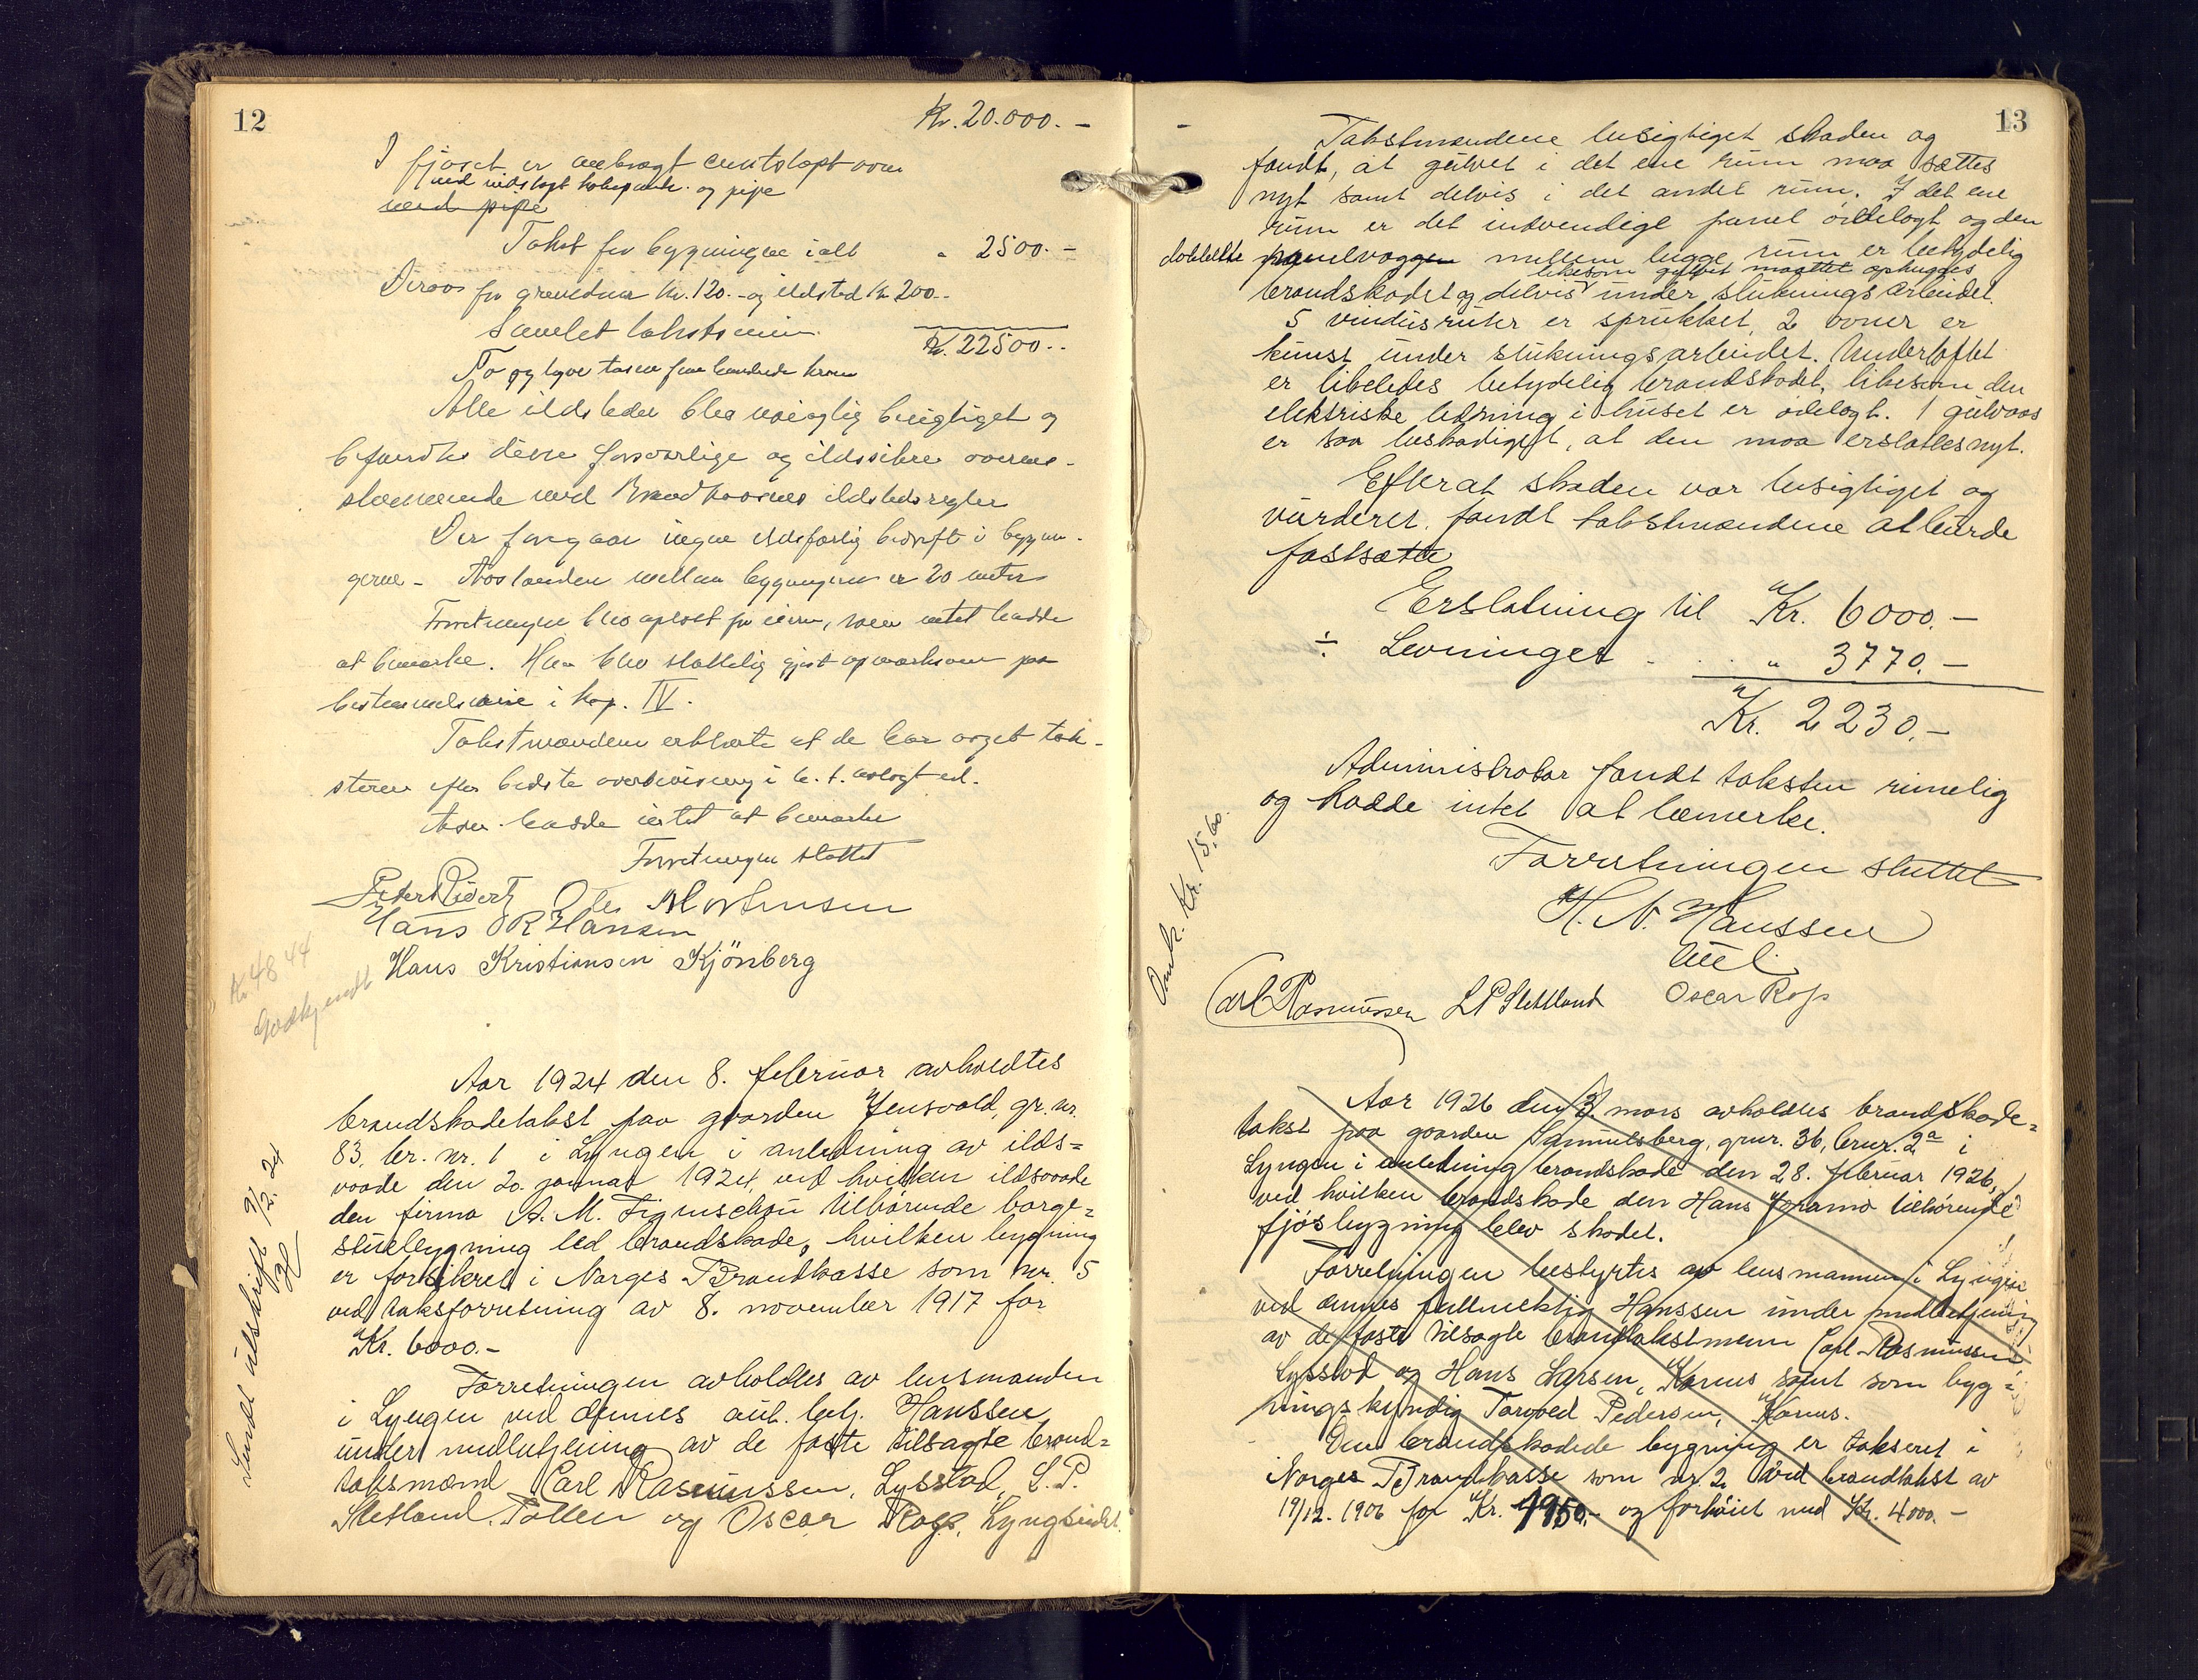 12
Kr. 20.000.-
I fjøset er anbragt
med indelagt kokepande og pipe
med pipe
Takst for bygningen ialt " 2500.-
Derav for grundmur kr. 120.- og ildsted kr 200.-
Samlet takstsum Kr. 22500.-
To og tyve tusen fem hundrede kroner
Alle ildsteder blev nøiaglig besigtiget og
befandtes disse forsvarlige og ildssikre overens-
stemmende med Brandkassens ildstedsregler
Der foregaar ingen ildsfarlig bedrift i bygnin-
gerne - Avstanden mellem bygningerne er 20 meter
Forretningen blev oplæst for eieren, som intet hadde
at bemærke. Han blev slutelig gjort opmærksom paa
bestemmelserne i kap. IV.
Takstmændene erklærte at de har avgit tak-
sterne efter bedste overbevisning i h. t. avlagt ed.
Ingen hadde intet at bemærke
Forretningen sluttet
Peder Ole Mortensen
Hans OR Hansen
Hans Kristiansen Kjönberg
Kr 48 44
Godkjendt
Aar 1924 den 8. februar avholdtes
brandskadetakst paa gaarden Jensvold, gr. nr.
83, br. nr. 1 i Lyngen i anledning av ilds=
vaade den 20. januar 1924, ved hvilken ildsvaade
den firma A. M. Figenschou tilhørende borge=
stuebygning led brandskade, hvilken bygning
er forsikret i Norges Brandkasse som nr. 5
ved taksforretning av 8. november 1917 for
Kr. 6000.-
Forretningen avholdtes av lensmanden
i Lyngen ved dennes aut. betj. Hanssen
under medbetjening av de faste tilsagte brand=
taksmænd Carl Rasmussen, Lysstad, L. P.
Sletland, Pollen og Oscar Rops, Lyngseidet.
Sendt utskrift 9/2. 24
H
13
Takstmændene besigtiget skaden og
fandt, at gulvet i det ene rum maa sættes
nyt samt delvis i det andet rum. I det ene
rum er det indvendige panel ødelagt og den
dobbelte panelvæggen mellem begge rum er betydelig
likesom gulvet maattet ophugges
brandskadet og delvis under slukningsarbeidet.
5 vindusruter er sprukket, 2 ovner er
knust under slukningsarbeidet. Underloftet
er likeledes betydelig brandskadet, likesom den
elektriske ledning i huset er ødelagt. 1 gulvaas
er saa beskadiget, at den maa erstattes nyt.
Efterat skaden var besigtiget og
vurderet, fandt takstmændene at burde
fastsætte
Erstatning til Kr. 6000.-
÷ Levninger . . . " 3770.-
Kr. 2230.-
Administrator fandt taksten rimelig
og hadde intet at bemerke.
Forretningen sluttet
H. N. Hanssen
Carl Rasmussen L P Slettland Oscar Rops
Kr. 15.60.
Aar 1926 den 3 mars avholdtes brandskade=
takst paa gaarden Samuelsberg, grnr. 36, brnr. 2a i
Lyngen i anledning brandskade den 28. februar 1926,
ved hvilken brandskade den Hans Joramo tilhørende
fjøsbygning blev skadet.
Forretningen bestyrtes av lensmannen i Lyngen
ved dennes fullmektig Hanssen under medbetjening
av de faste tilsagte brandtakstmenn Carl Rasmussen
Lysstad og Hans Larsen, Kornes samt som byg=
ningskyndig Torvald Pedersen, Kornes.
Den brandskadede bygning er takseret i
Norges Brandkasse som nr. 2 ved brandtakst av
19/12. 1906 for Kr. 1950.- og forhøiet med Kr. 4000.-